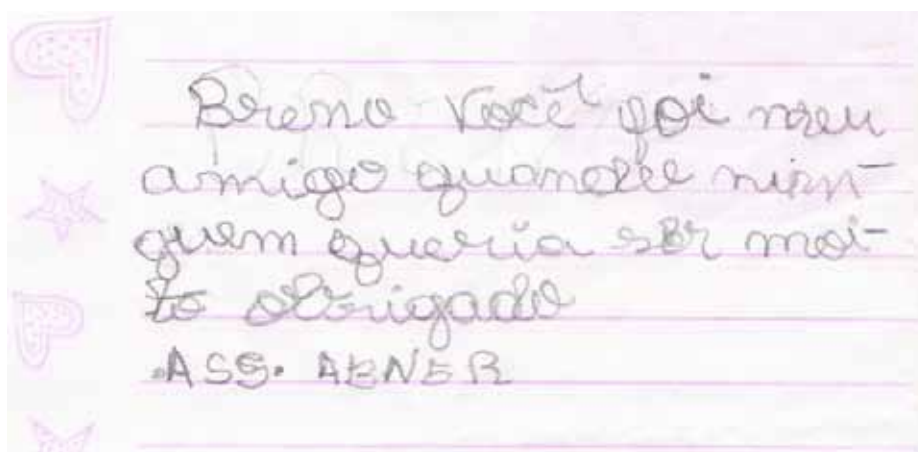 Breno você foi meu
amigo quando nin-
guem queria ser moi-
to obrigado
.ASS. ABNER